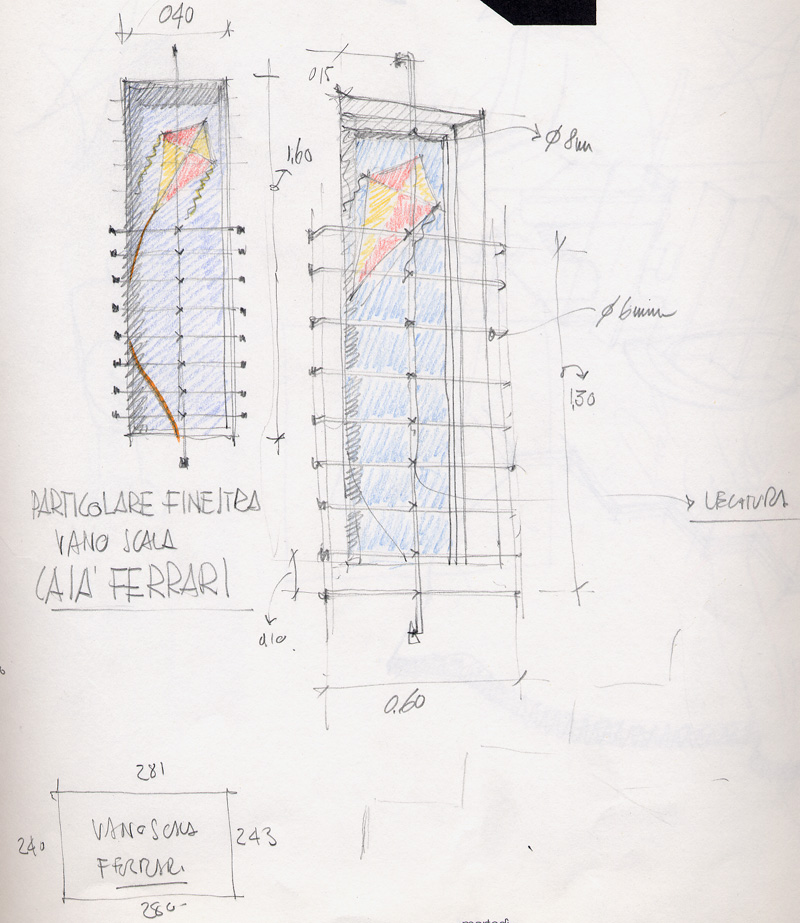 040
015
Ø 8mm
1.60
Ø 6mm
1.30
LEGATURA
PARTICOLARE FINESTRA
VANO SCALA
CASA FERRARI
0.10
0.60
281
VANO SCALA
240
243
FERRARI
280